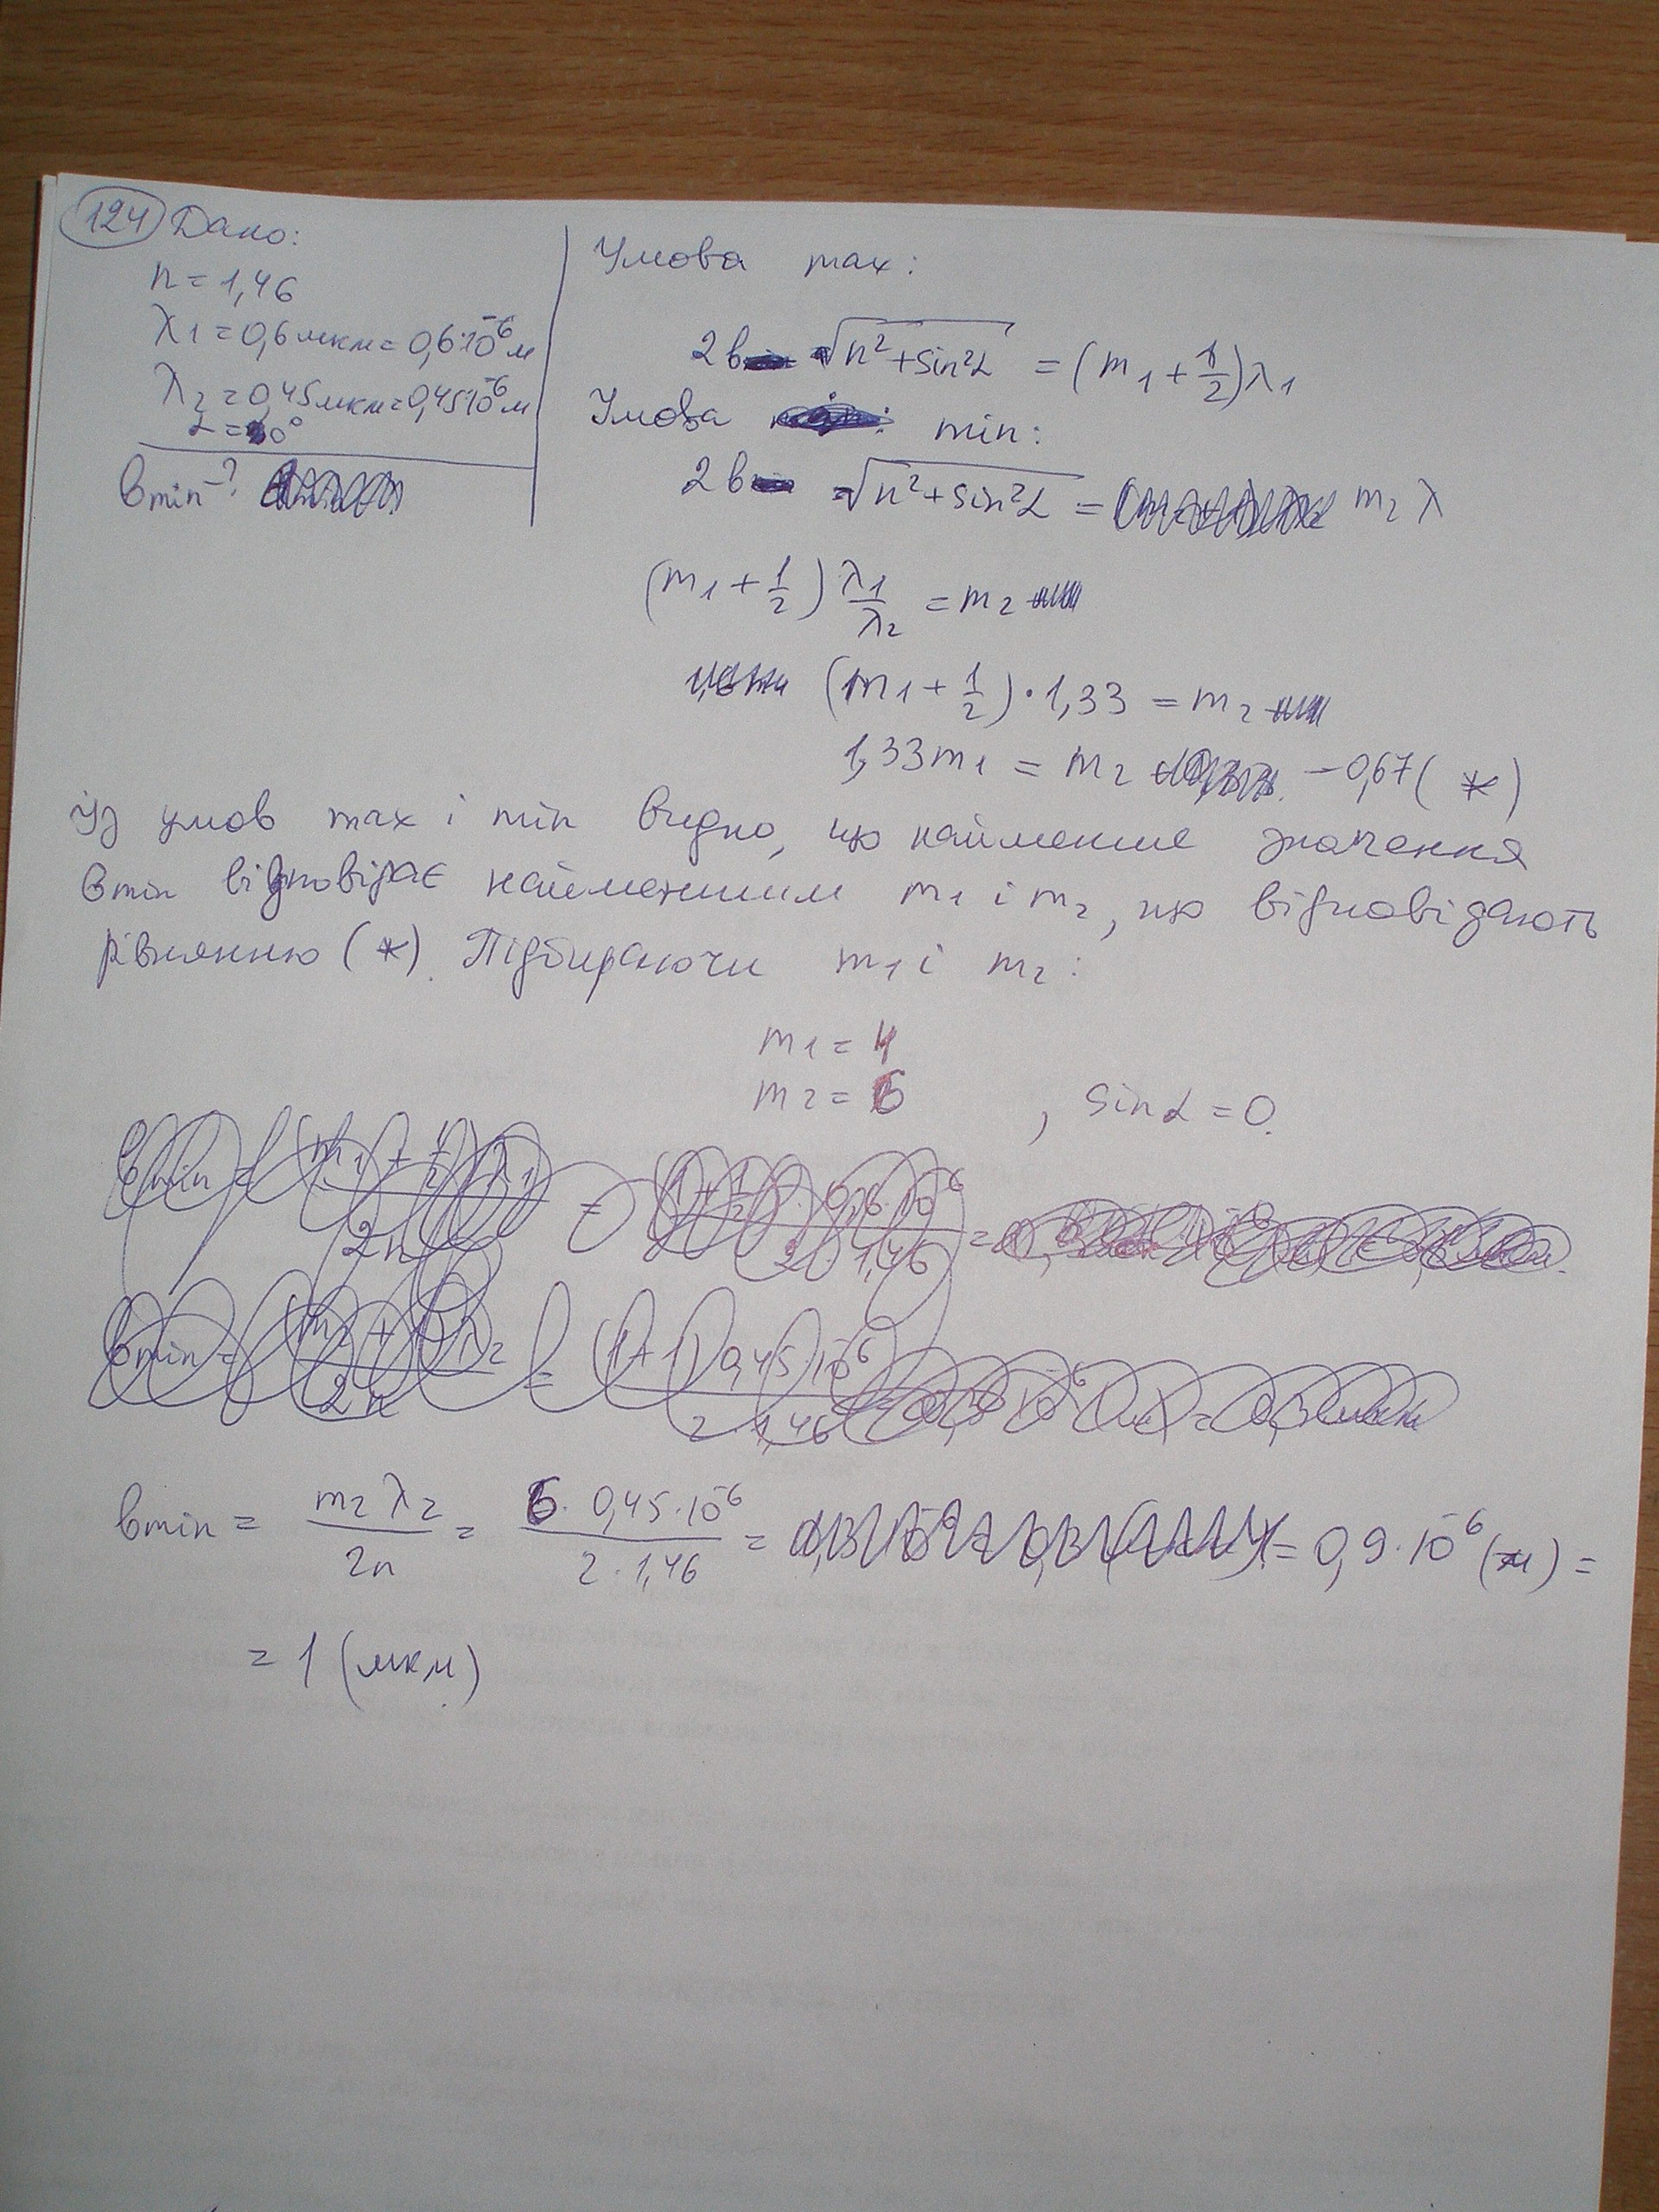 124 Дано:
n = 1,46
λ1 = 0,6 мкм = 0,6·10^-6 м
λ2 = 0,45 мкм = 0,45·10^-6 м
α = 0°
bmin - ?
Умова max:
2b √(n² + sin²α) = (m1 + 1/2) λ1
Умова min:
2b √(n² + sin²α) = m2 λ
(m1 + 1/2) λ1/λ2 = m2
(m1 + 1/2) · 1,33 = m2
1,33 m1 = m2 - 0,67 (*)
Із умов max і min видно, що найменше значення
bmin відповідає найменшим m1 і m2, що відповідають
рівнянню (*). Підбираючи m1 і m2:
m1 = 4
m2 = 6 , sin α = 0.
bmin = m2 λ2 / 2n = 6 · 0,45 · 10^-6 / 2 · 1,46 = = 0,9 · 10^-6 (м) =
= 1 (мкм)